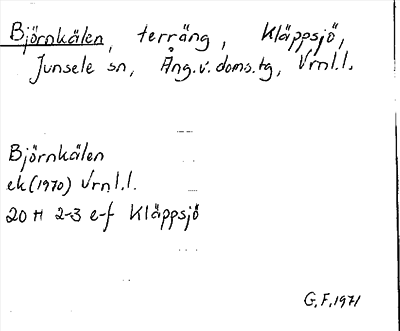 Björnkälen, terräng, Kläppsjö,
Junsele sn, Ång.v.doms.tg, Vrnl.l.
Björnkälen
ek(1970) Vrnl.l.
20 H 2-3 e-f Kläppsjö
G.F.1971